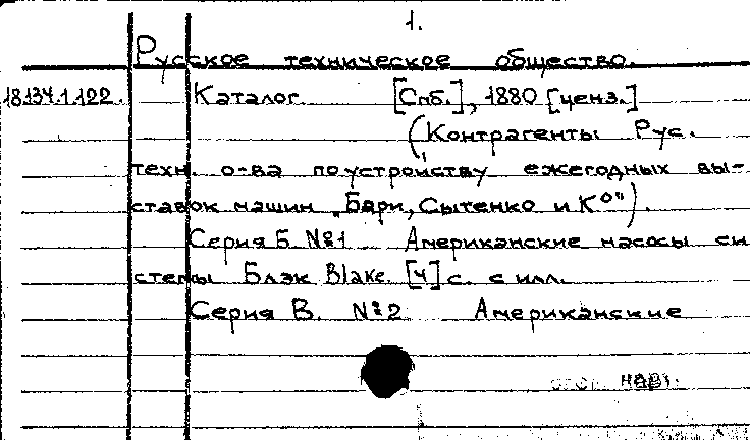 1.
Русское техническое общество.
18.134.1.122. Каталог [Спб.], 1880 [ценз.]
(Контрагенты Рус.
техн. о-ва по устройству ежегодных вы-
ставок машин „Бари, Сытенко и К⁰").
Серия Б. №1 Американские насосы си
стемы Блэк Blake. [4] с. с илл.
Серия В. №2 Американские